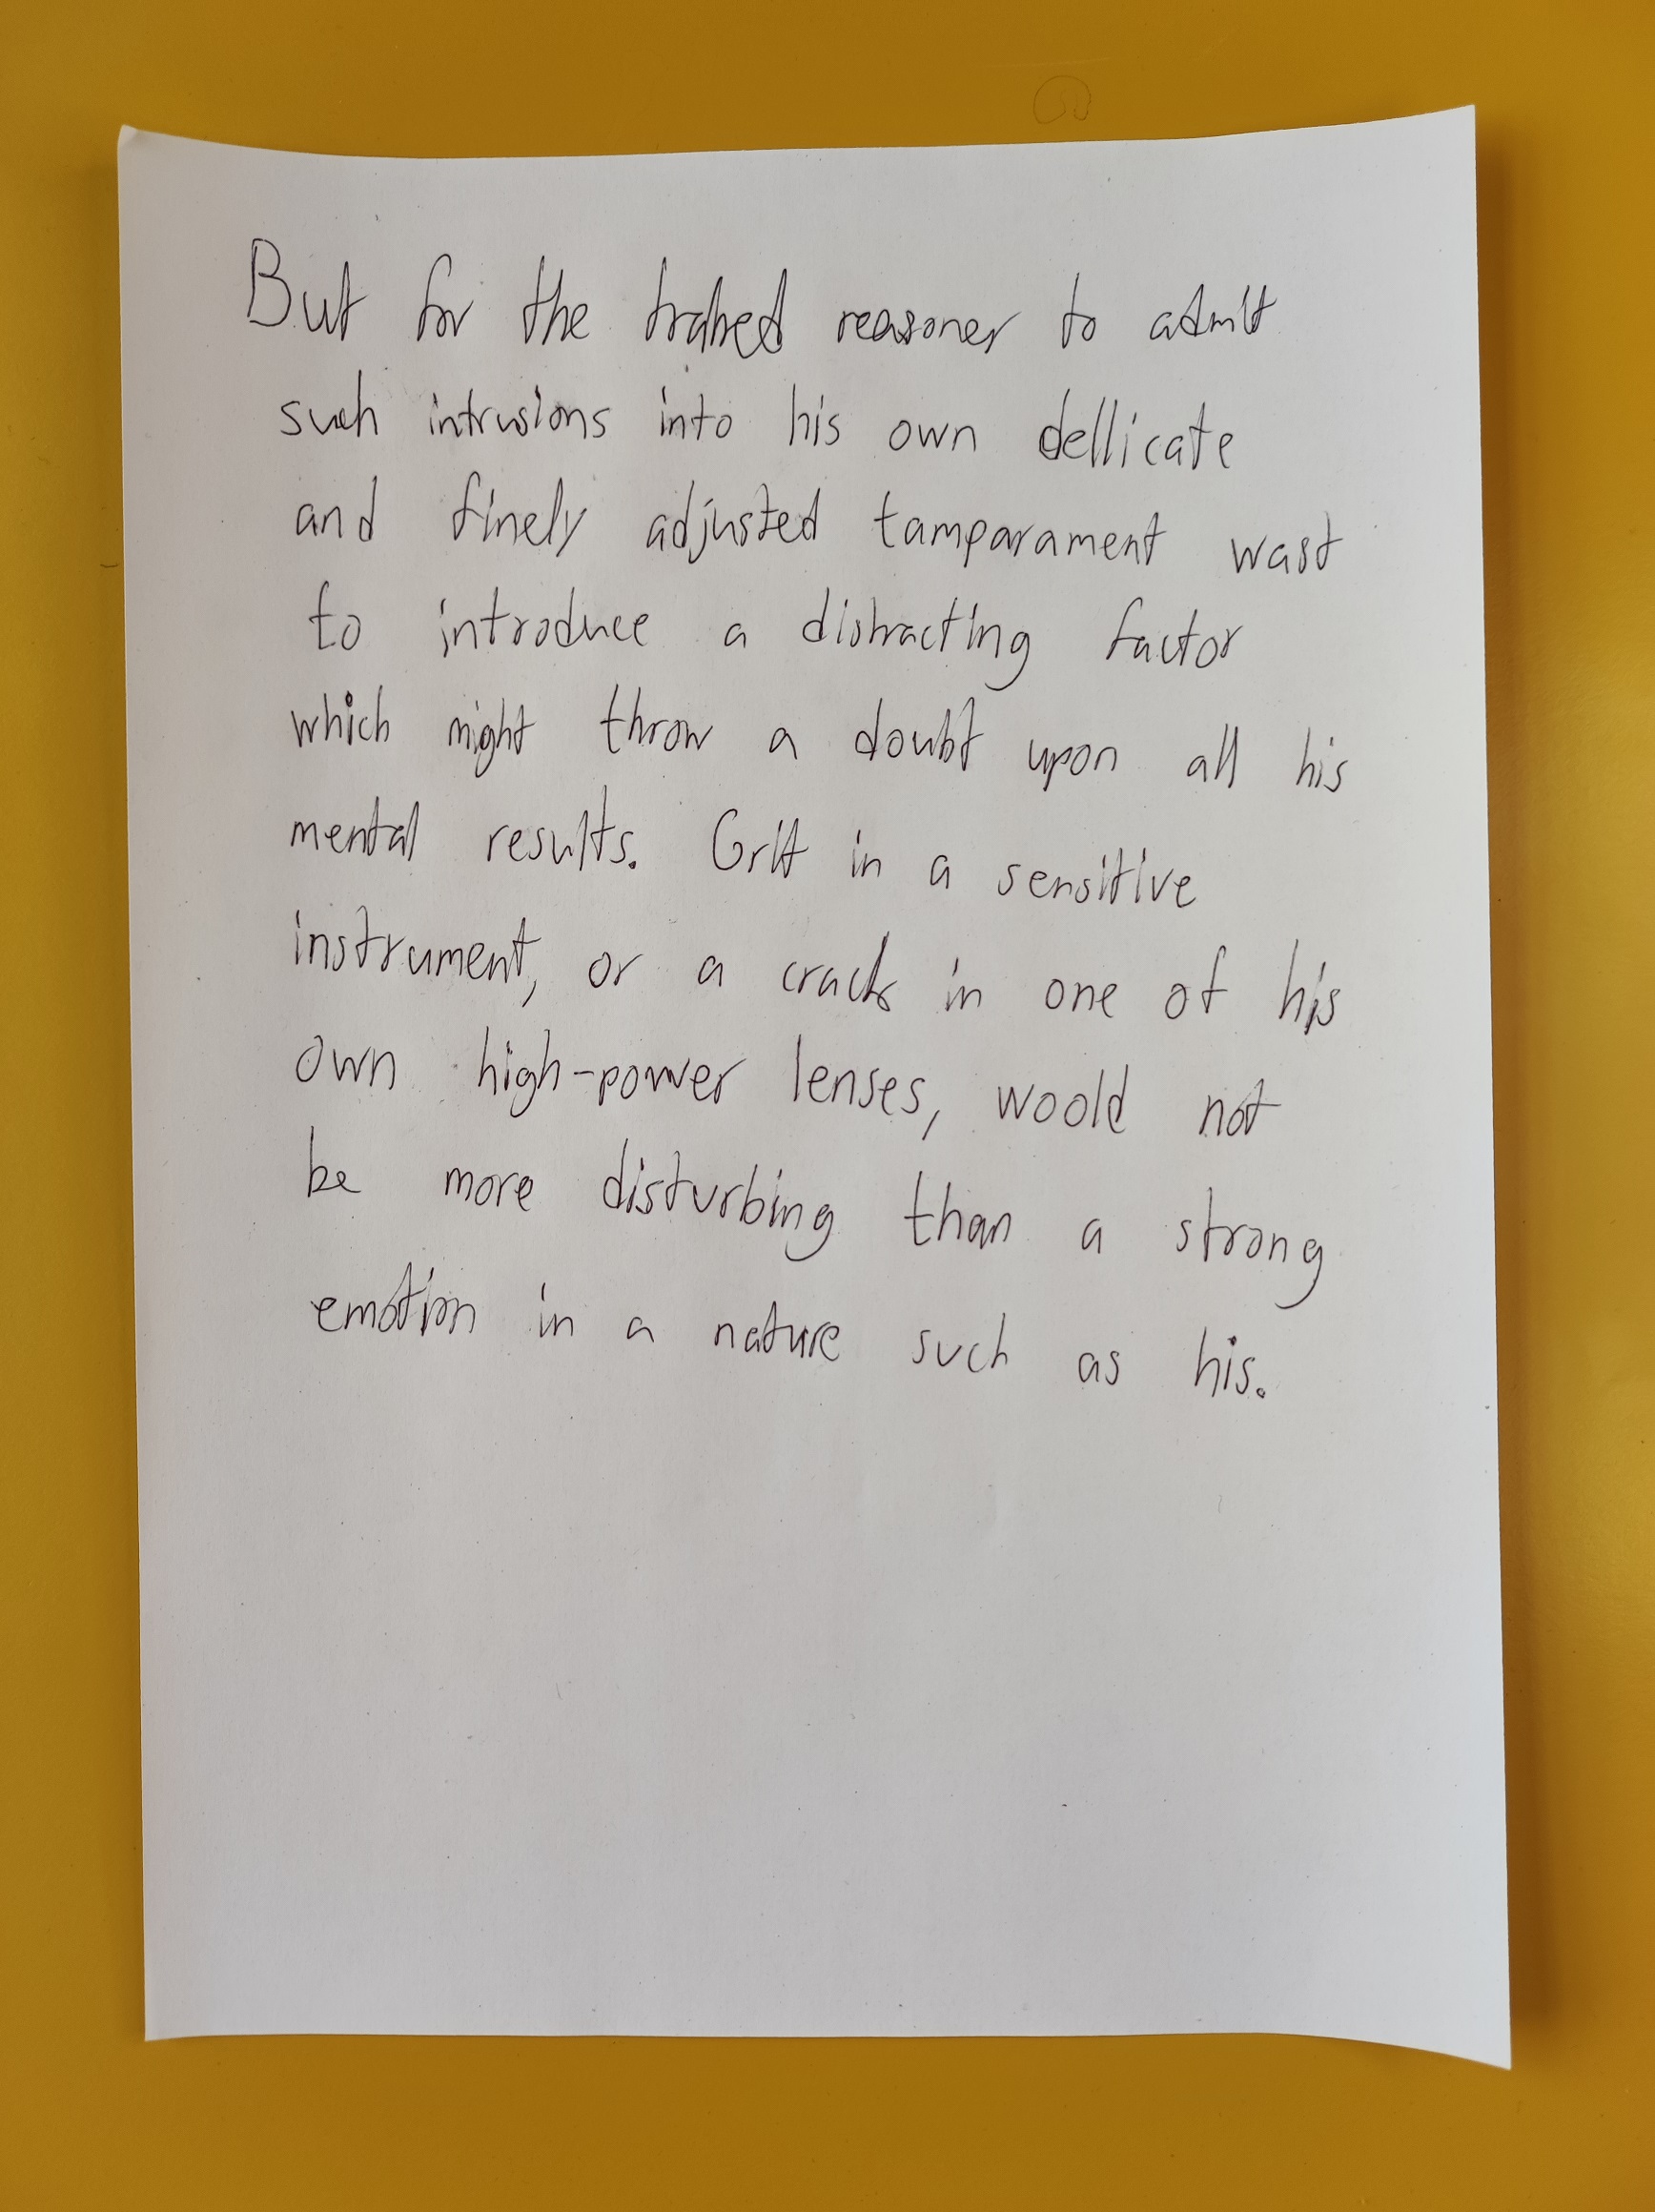 But for the trained reasoner to admit
such intrusions into his own dellicate
and finely adjusted tamparament wast
to introduce a distracting factor
which might throw a doubt upon all his
mental results. Grit in a sensitive
instrument, or a crack in one of his
own high-power lenses, woold not
be more disturbing than a strong
emotion in a nature such as his.